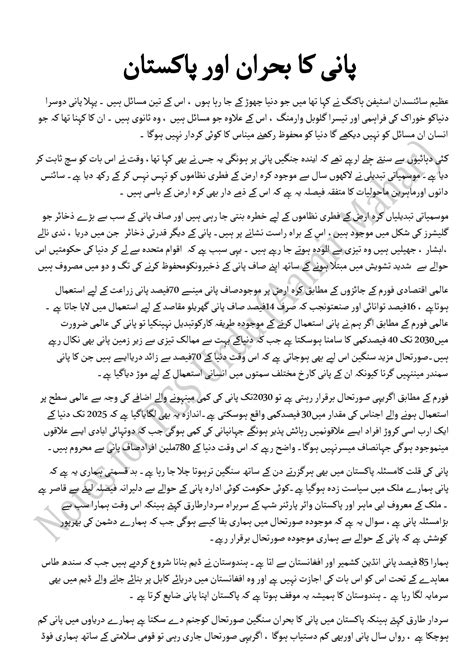 پانی کا بحران اور پاکستان
عظیم سائنسدان اسٹیفن ہاکنگ نے کہا تھا میں جو دنیا چھوڑ کے جا رہا ہوں ، اس کے تین مسائل ہیں ۔ پہلا پانی دوسرا
دنیاکو خوراک کی فراہمی اور تیسرا گلوبل وارمنگ ، اس کے علاوہ جو مسائل ہیں ، وہ ثانوی ہیں ۔ ان کا کہنا تھا کہ جو
انسان ان مسائل کو نہیں دیکھے گا دنیا کو محفوظ رکھنے میںاس کا کوئی کردار نہیں ہوگا ۔
کئی دہائیوں سے سنتے چلے ارہے تھے کہ ایندہ جنگیں پانی پر ہونگی یہ جس نے بھی کہا تھا ، وقت نے اس بات کو سچ ثابت کر
دیا ہے ۔ موسمیاتی تبدیلی نے لاکھوں سال سے موجود کرہ ارض کے فطری نظاموں کو تہس نہس کر کے رکھ دیا ہے ۔ سائنس
دانوں اورماہرین ماحولیات کا متفقہ فیصلہ یہ ہے کہ اس کے ذمے دار بھی کرہ ارض کے باسی ہیں ۔
موسمیاتی تبدیلیاں کرہ ارض کے فطری نظاموں کے لیے خطرہ بنتی جا رہی ہیں اور صاف پانی کے سب سے بڑے ذخائر جو
گلیشرز کی شکل میں موجود ہیں ، اس کے براہ راست نشانے پر ہیں ۔ پانی کے دیگر قدرتی ذخائر جن میں دریا ، ندی نالے
،ابشار ، جھیلیں ہیں وہ تیزی سے الودہ ہوتے جا رہے ہیں ۔ یہی سبب ہے کہ اقوام متحدہ سے لے کر دنیا کی حکومتیں اس
حوالے سے شدید تشویش میں مبتلا ہونے کے ساتھ اپنے صاف پانی کے ذخیرونکومحفوظ کرنے کی تگ و دو میں مصروف ہیں
عالمی اقتصادی فورم کے جائزوں کے مطابق کرہ ارض پر موجودصاف پانی مینسے 70فیصد پانی زراعت کے لیے استعمال
ہوتاہے ، 16فیصد توانائی اور صنعتونجب کہ صرف 14فیصد صاف پانی گھریلو مقاصد کے لیے استعمال میں لایا جاتا ہے ۔
عالمی فورم کے مطابق اگر ہم نے پانی استعمال کرنے کے موجودہ طریقہ کارکوتبدیل نہینکیا تو پانی کی عالمی ضرورت
میں2030 تک 40 فیصدکمی کا سامنا ہوسکتا ہے جب کہ دنیاکے بہت سے ممالک تیزی سے زیر زمین پانی بھی نکال رہے
ہیں ۔صورتحال مزید سنگین اس لیے بھی ہوجاتی ہے کہ اس وقت دنیا کے 70فیصد سے زائد دریاایسے ہیں جن کا پانی
سمندر مینںہیں گرتا کیونکہ ان کے پانی کارخ مختلف سمتوں میں انسانی استعمال کے لیے موڑ دیاگیا ہے ۔
فورم کے مطابق اگریہی صورتحال برقرار رہتی ہے تو 2030تک پانی کی کمی مینہونے والے اضافے کی وجہ سے عالمی سطح پر
استعمال ہونے والے اجناس کی مقدار میں30 فیصدکمی واقع ہوسکتی ہے ۔اندازہ یہ بھی لگایاگیا ہے کہ 2025 تک دنیا کے
ایک ارب اسی کروڑ افراد ایسے علاقونمیں رہائش پذیر ہونگے جہانپانی کی کمی ہوگی جب کہ دوتہائی ابادی ایسے علاقوں
مینموجود ہوگی جہانصاف میسرنہیں ہوگا ۔ واضح رہے کہ اس وقت دنیا کے 780ملین افرادصاف پانی سے محروم ہیں ۔
پانی کی قلت کامسئلہ پاکستان میں بھی ہرگزرنے دن کے ساتھ سنگین ترہوتا چلا جا رہا ہے ۔ بد قسمتی ہماری یہ ہے کہ
پانی ہمارے ملک میں سیاست زدہ ہوگیا ہے ۔کوئی حکومت کوئی ادارہ پانی کے حوالے سے دلیرانہ فیصلہ لینے سے قاصر ہے
۔ ملک کے معروف ابی ماہر اور پاکستان واٹر پارٹنر شپ کے سربراہ سردارطارق کہتے ہینکہ اس وقت ہمارا سب سے
بڑامسئلہ پانی ہے ، سوال یہ ہے کہ موجودہ صورتحال میں ہماری بقا کیسے ہوگی جب کہ ہمارے دشمن کی بھرپور
کوشش ہے کہ پانی کے حوالے سے ہماری موجودہ صورتحال برقرار رہے ۔
ہمارا 85 فیصد پانی انڈین کشمیر اور افغانستان سے اتا ہے ۔ ہندوستان نے ڈیم بنانا شروع کردیے ہیں جب کہ سندھ طاس
معاہدے کے تحت اس کو اس بات کی اجازت نہیں ہے اور وہ افغانستان میں دریائے کابل پر بنائے جانے والے ڈیم میں بھی
سرمایہ لگا رہا ہے ۔ ہندوستان کا ہمیشہ یہ موقف ہوتا ہے کہ پاکستان اپنا پانی ضایع کرتا ہے ۔
سردار طارق کہتے ہینکہ پاکستان میں پانی کا بحران سنگین صورتحال کوجنم دے سکتا ہے ہمارے دریاؤں میں پانی کم
ہوچکا ہے ، رواں سال پانی اوربھی کم دستیاب ہوگا ، اگریہی صورتحال جاری رہی تو قومی سلامتی کے ساتھ ہماری فوڈ